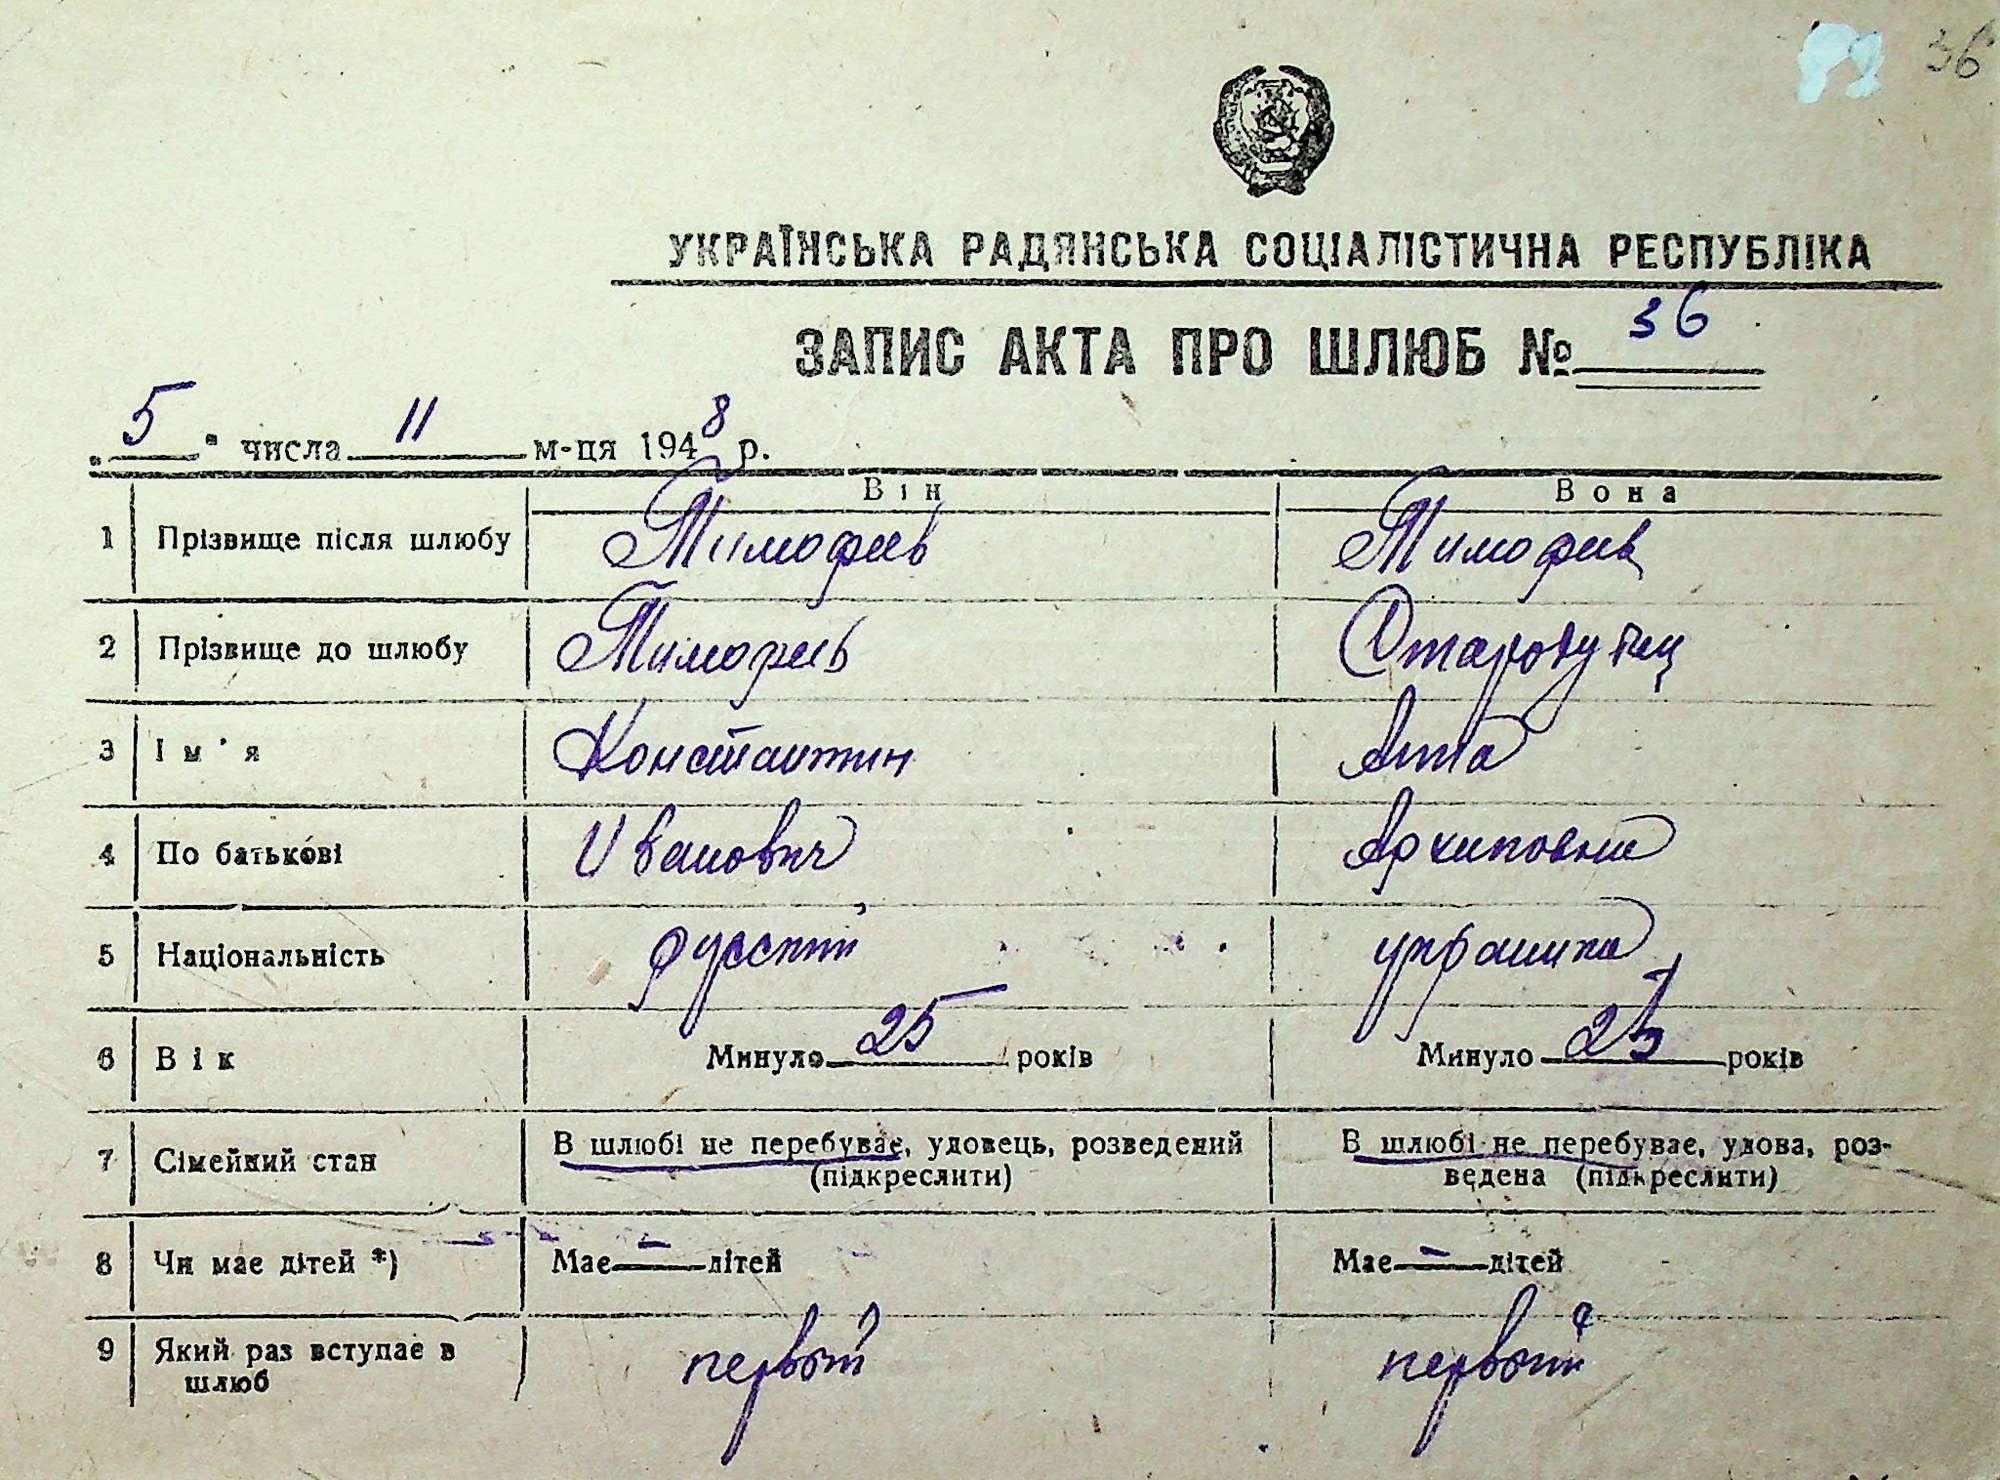 36
УКРАЇНСЬКА РАДЯНСЬКА СОЦІАЛІСТИЧНА РЕСПУБЛІКА
ЗАПИС АКТА ПРО ШЛЮБ № 36
„5" числа 11 м-ця 1948 р.
Він Вона
1 Прізвище після шлюбу Тимофеев Тимофеев
2 Прізвище до шлюбу Тимофеев
3 Ім'я Константин Анна
4 По батькові Иванович Архиповна
5 Національність русский украинка
6 Вік Минуло 25 років Минуло 25 років
7 Сімейний стан В шлюбі не перебуває, удовець, розведений (підкреслити) В шлюбі не перебуває, удова, роз-
ведена (підкреслити)
8 Чи має дітей *) Має — дітей Має — дітей
9 Який раз вступає в шлюб первый первый